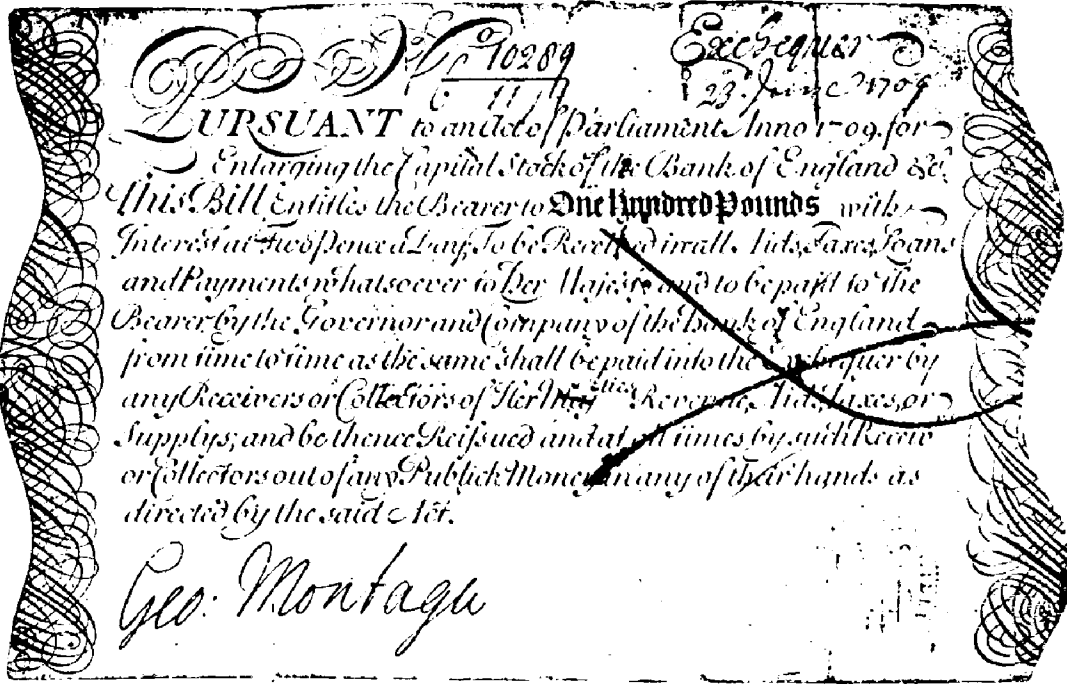 No 10289
Exchequer
23 June 1709
PURSUANT to an Act of Parliament Anno 1709 for
Enlarging the Capital Stock of the Bank of England &c.
this Bill Entitles the Bearer to One Hundred Pounds with
Interest at Two Pence a Day, To be Received in all Aids, Taxes, Loans
and Payments whatsoever to Her Majesty and to be paid to the
Bearer by the Governor and Company of the Bank of England
from time to time as the same shall be paid into the Exchequer by
any Receivers or Collectors of Her Majesties Revenue, Aids, Taxes, or
Supplys; and be thence Reissued and at all times by such Receiv
or Collectors out of any Publick Money in any of their hands as
directed by the said Act.
Geo: Montagu